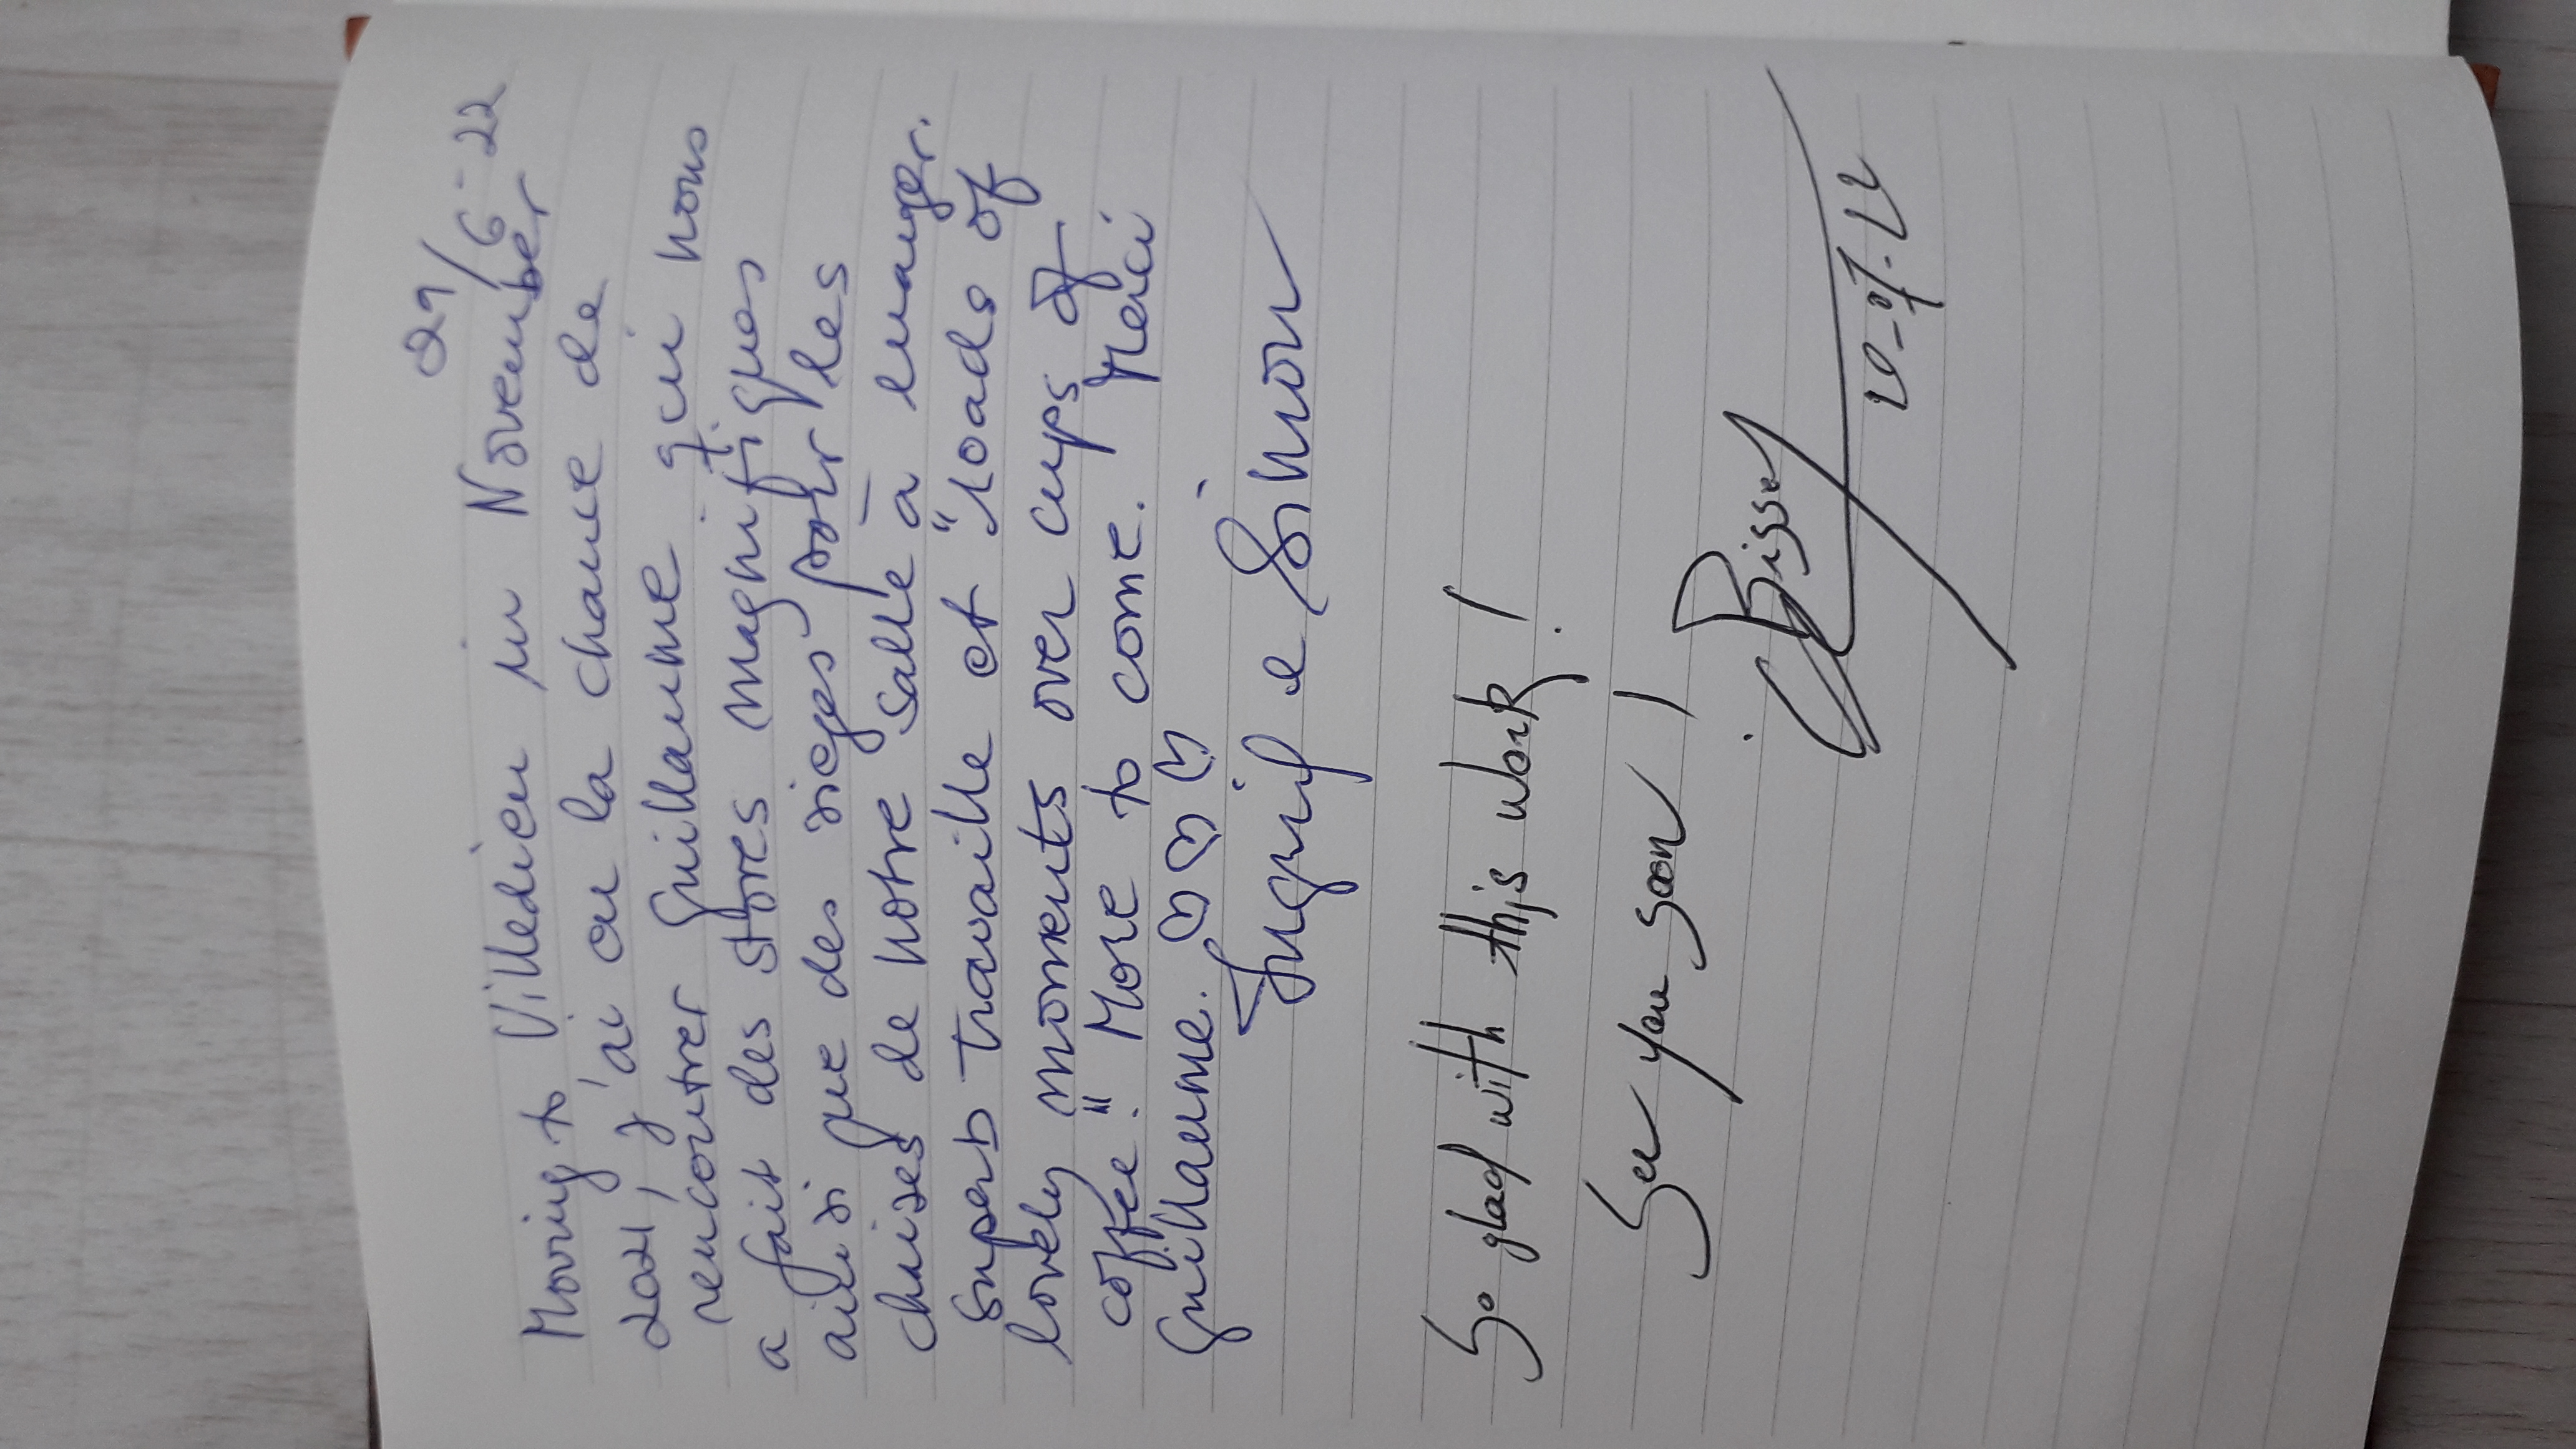 29/6-22
Moving to Villedieu in November
2021, j'ai eu la chance de
rencontrer Guillaume qui nous
a fait des stores magnifiques
ainsi que des sieges pour les
chaises de notre salle à manger.
Superb travaille et "loads of
lovely moments over cups of
coffee." More to come. Merci
Guillaume. ♡ ♡ ♡
Ingrid e Simon
So glad with this work!
See you soon!
20-07-22